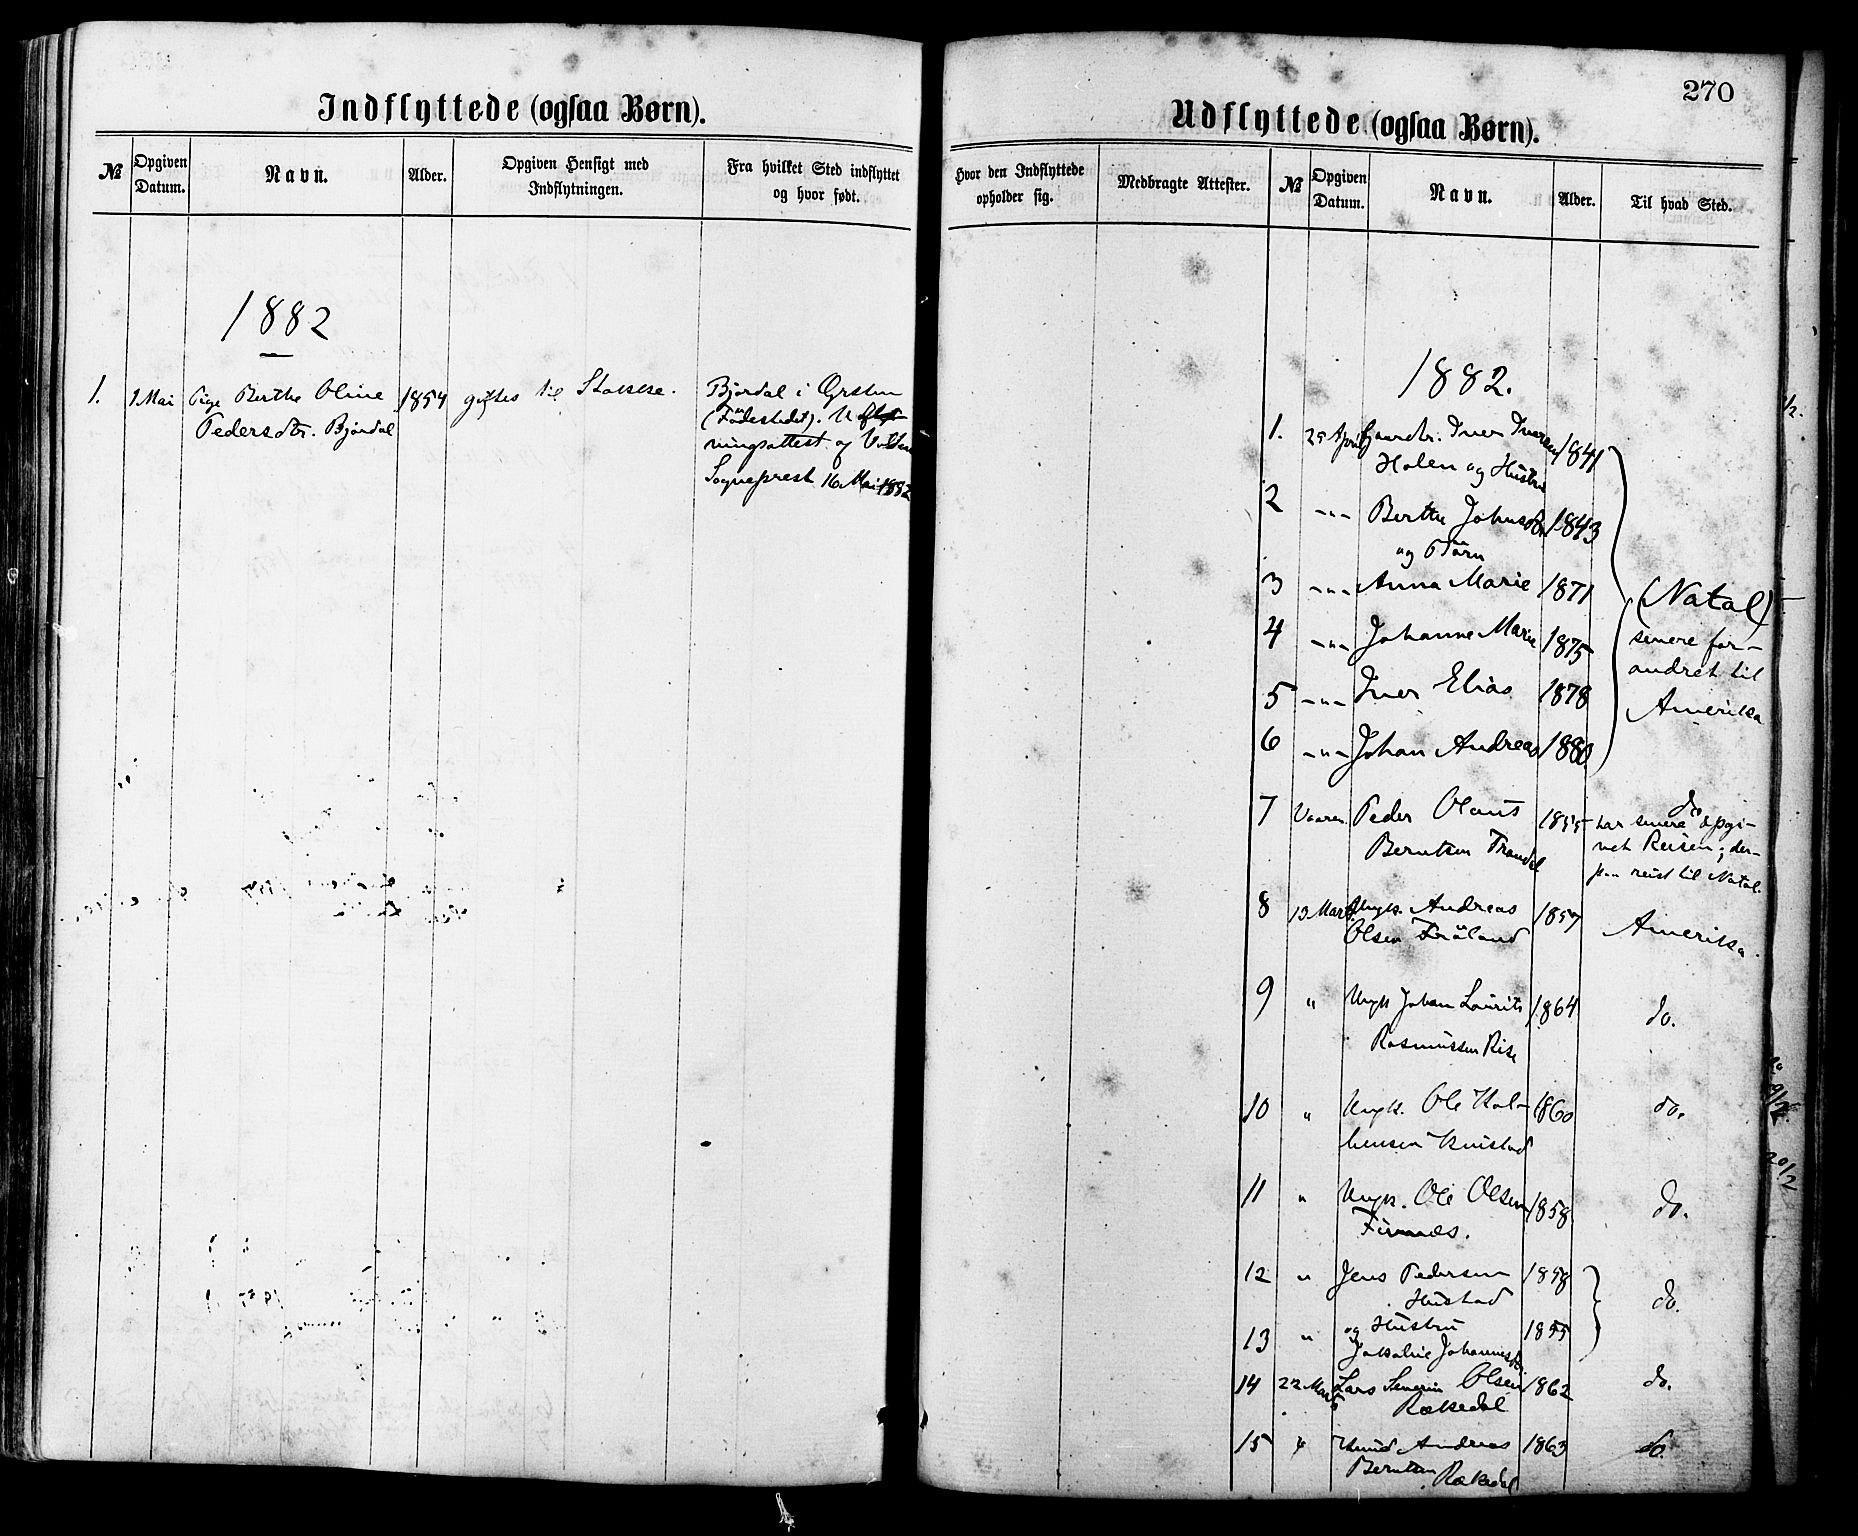 Indflyttede (ogsaa Børn).
№ Opgiven Datum. Navn. Alder. Opgiven Hensigt med Indflytningen. Fra hvilket Sted indflyttet og hvor født.
1882
1. 1 Mai Pige Berthe Oline 1854 giftes til Stokke. Bjørdal i Ørsten
Pedersdtr. Bjørdal (Fødestedet).
ningsattest og Volden
Sogneprest 16 Mai 1882
270
Udflyttede (ogsaa Børn).
Hvor den Indflyttede opholder sig. Medbragte Attester. № Opgiven Datum. Navn. Alder. Til hvad Sted.
1882.
1. 25 April Gaardbr. Iver Iversen 1841
Holen og Hustru
2 -"- Berthe Johnsdtr 1843
og Børn
3 -"- Anna Marie 1871 (Natal)
4 -"- Johanne Marie 1875 senere for-
andret til
5 -"- Iver Elias 1878 Amerika
6 -"- Johan Andreas 1880
7 Vaaren Peder Olaus 1855 do
Berntsen Trandal har senere opgi-
vet Reisen; der-
paa reist til Natal.
8 13 Marts Ungk. Andreas 1857 Amerika.
Olsen Frøland
9 " Ungk Johan Laurits 1864 do.
Rasmussen Rise
10 " Ungk. Ole 1860 do.
11 " Ungk. Ole Olsen 1858 do.
12 " Jens Pedersen 1858
Hustad do.
13 " og Hustru 1855
Johannesdtr
14 22 Marts Lars Severin Olsen 1862 do.
Rækedal
15 " Knud Andreas 1863 do.
Berntsen Rækedal